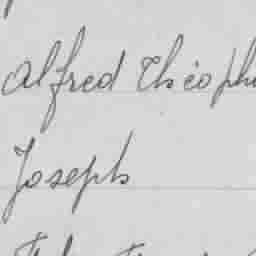 Alfred Théoph
Joseph